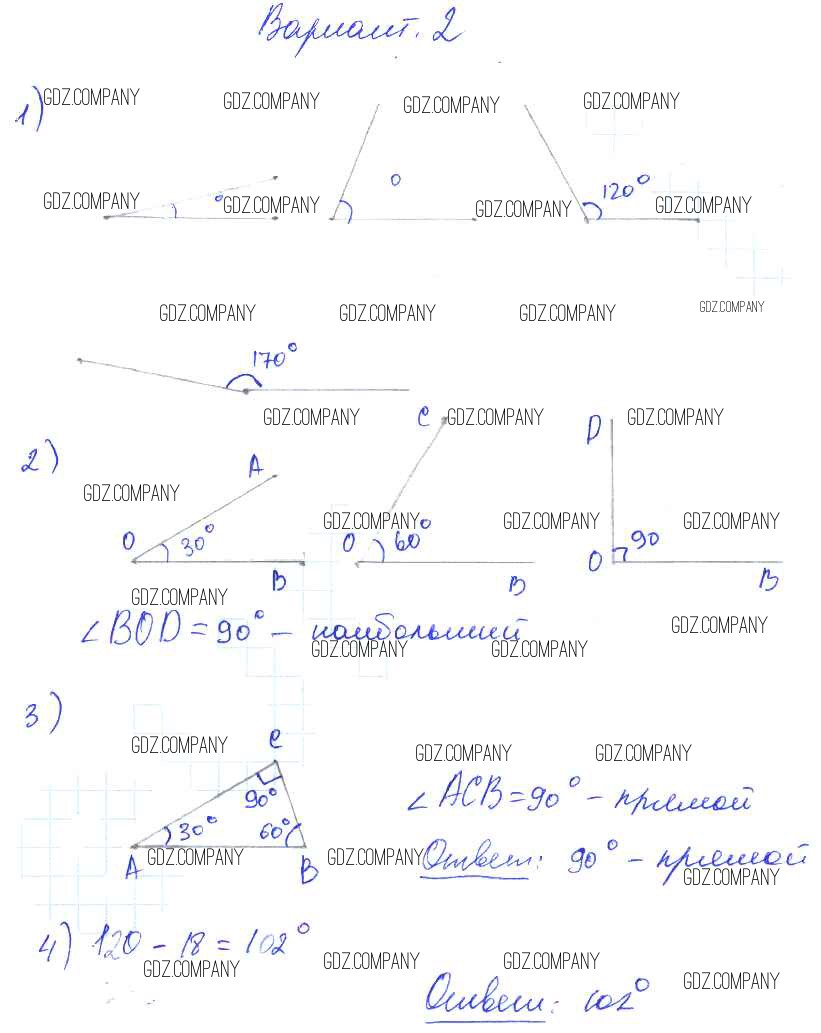 Вариант. 2
1)
GDZ.COMPANY GDZ.COMPANY GDZ.COMPANY GDZ.COMPANY
° ° 120°
GDZ.COMPANY GDZ.COMPANY GDZ.COMPANY GDZ.COMPANY
GDZ.COMPANY GDZ.COMPANY GDZ.COMPANY GDZ.COMPANY
170°
C GDZ.COMPANY GDZ.COMPANY GDZ.COMPANY
D
2) A
GDZ.COMPANY
GDZ.COMPANY GDZ.COMPANY GDZ.COMPANY
O 30° O 60° O 90
B B B
GDZ.COMPANY
∠BOD = 90° - наибольший
GDZ.COMPANY
GDZ.COMPANY GDZ.COMPANY
3)
GDZ.COMPANY C GDZ.COMPANY GDZ.COMPANY
90° ∠ACB = 90° - прямой
30° 60°
A GDZ.COMPANY B GDZ.COMPANY Ответ: 90° - прямой
GDZ.COMPANY
4) 120 - 18 = 102°
GDZ.COMPANY GDZ.COMPANY GDZ.COMPANY GDZ.COMPANY
Ответ: 102°